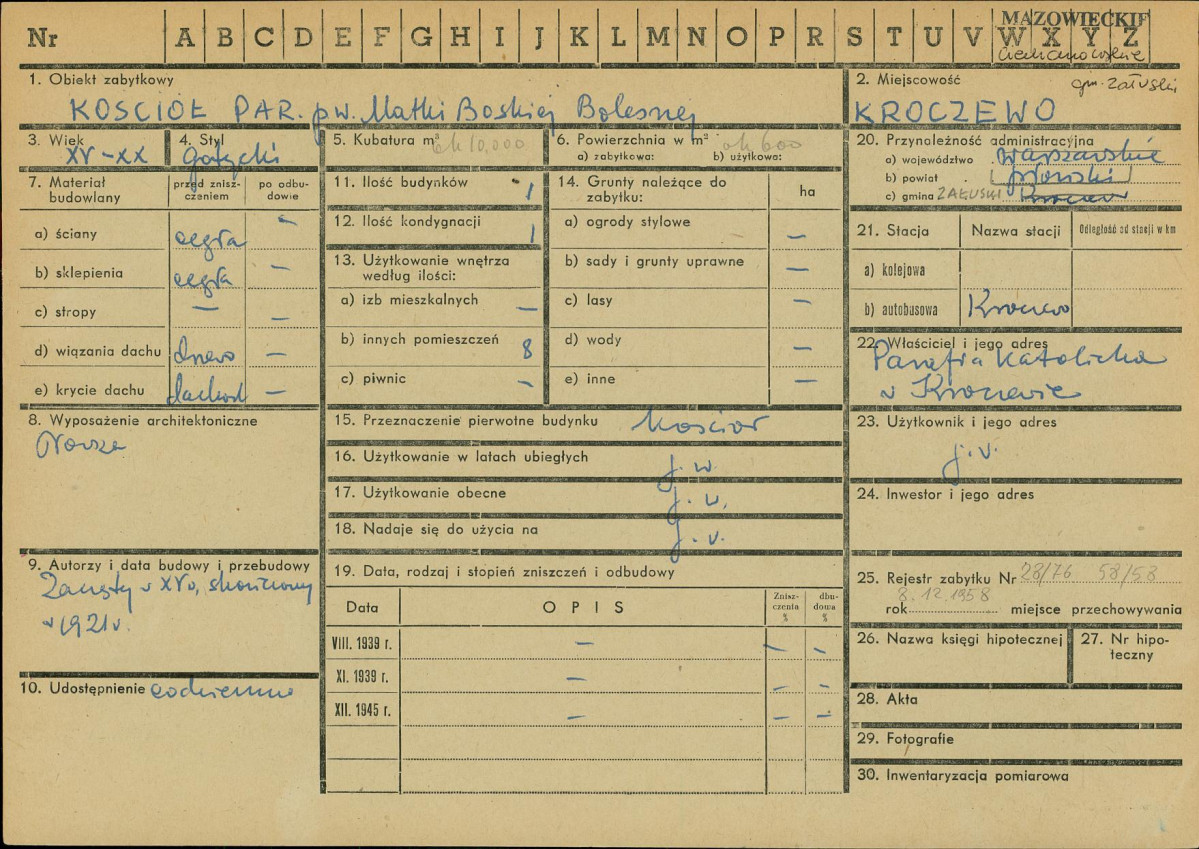 Nr A B C D E F G H I J K L M N O P R S T U V W X Y Z
MAZOWIECKIE
ciechanowskie
1. Obiekt zabytkowy
KOSCIOŁ PAR. pw. Matki Boskiej Bolesnej
2. Miejscowość
gm. Załuski
KROCZEWO
3. Wiek
XV-XX
4. Styl
gotycki
5. Kubatura m³ ok 10.000
6. Powierzchnia w m² ok 600
a) zabytkowa: b) użytkowa:
7. Materiał budowlany
przed zniszczeniem
po odbudowie
a) ściany cegła -
b) sklepienia cegła -
c) stropy - -
d) wiązania dachu drewo -
e) krycie dachu dachów -
8. Wyposażenie architektoniczne
Nowsze
9. Autorzy i data budowy i przebudowy
Zaczęty w XV w, skończony
w 1921 r.
10. Udostępnienie codziennie
11. Ilość budynków 1
12. Ilość kondygnacji 1
13. Użytkowanie wnętrza
według ilości:
a) izb mieszkalnych -
b) innych pomieszczeń 8
c) piwnic -
14. Grunty należące do
zabytku:
ha
a) ogrody stylowe -
b) sady i grunty uprawne -
c) lasy -
d) wody -
e) inne -
15. Przeznaczenie pierwotne budynku kościół
16. Użytkowanie w latach ubiegłych j. w.
17. Użytkowanie obecne j. w.
18. Nadaje się do użycia na j. w.
19. Data, rodzaj i stopień zniszczeń i odbudowy
Data OPIS Zniszczenia % dbudowa %
VIII. 1939 r. - - -
XI. 1939 r. - - -
XII. 1945 r. - - -
20. Przynależność administracyjna
a) województwo warszawskie
b) powiat płoński
c) gmina ZAŁUSKI Kroczewo
21. Stacja Nazwa stacji Odległość od stacji w km
a) kolejowa
b) autobusowa Kroczewo
22. Właściciel i jego adres
Parafia Katolicka
w Kroczewie
23. Użytkownik i jego adres
j. w.
24. Inwestor i jego adres
25. Rejestr zabytku Nr 28/76 58/58
8.12.1958
rok miejsce przechowywania
26. Nazwa księgi hipotecznej
27. Nr hipoteczny
28. Akta
29. Fotografie
30. Inwentaryzacja pomiarowa